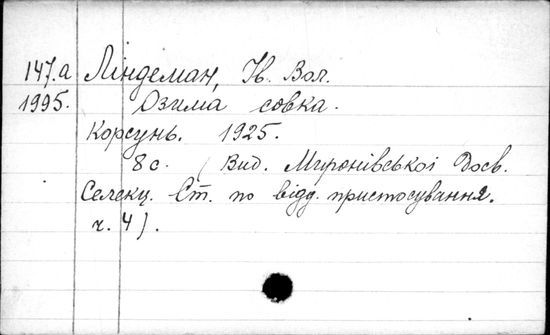 147.а Ліндеман, Ів. Вол.
1995. Озима совка.
Корсунь. 1925.
8 с. (Вид. Миронівської Досв.
Селекц. Ст. по відд. пристосування.
ч. 4).